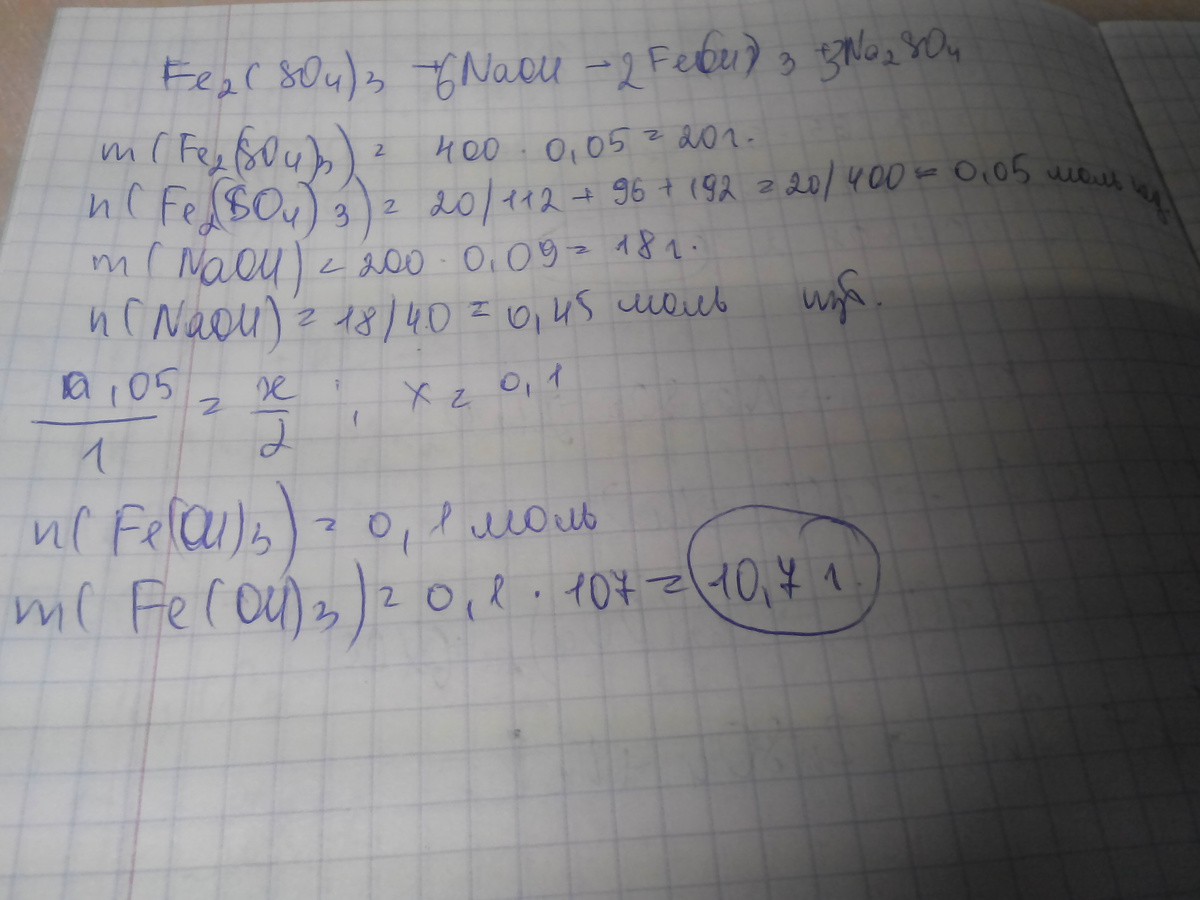 Fe₂(SO₄)₃ + 6NaOH → 2Fe(OH)₃ + 3Na₂SO₄
m(Fe₂(SO₄)₃) = 400 · 0,05 = 20г.
n(Fe₂(SO₄)₃) = 20/112 + 96 + 192 = 20/400 = 0,05 моль
m(NaOH) = 200 · 0,09 = 18г.
n(NaOH) = 18/40 = 0,45 моль изб.
0,05/1 = x/2 ; x = 0,1
n(Fe(OH)₃) = 0,1 моль
m(Fe(OH)₃) = 0,1 · 107 = 10,7 г.